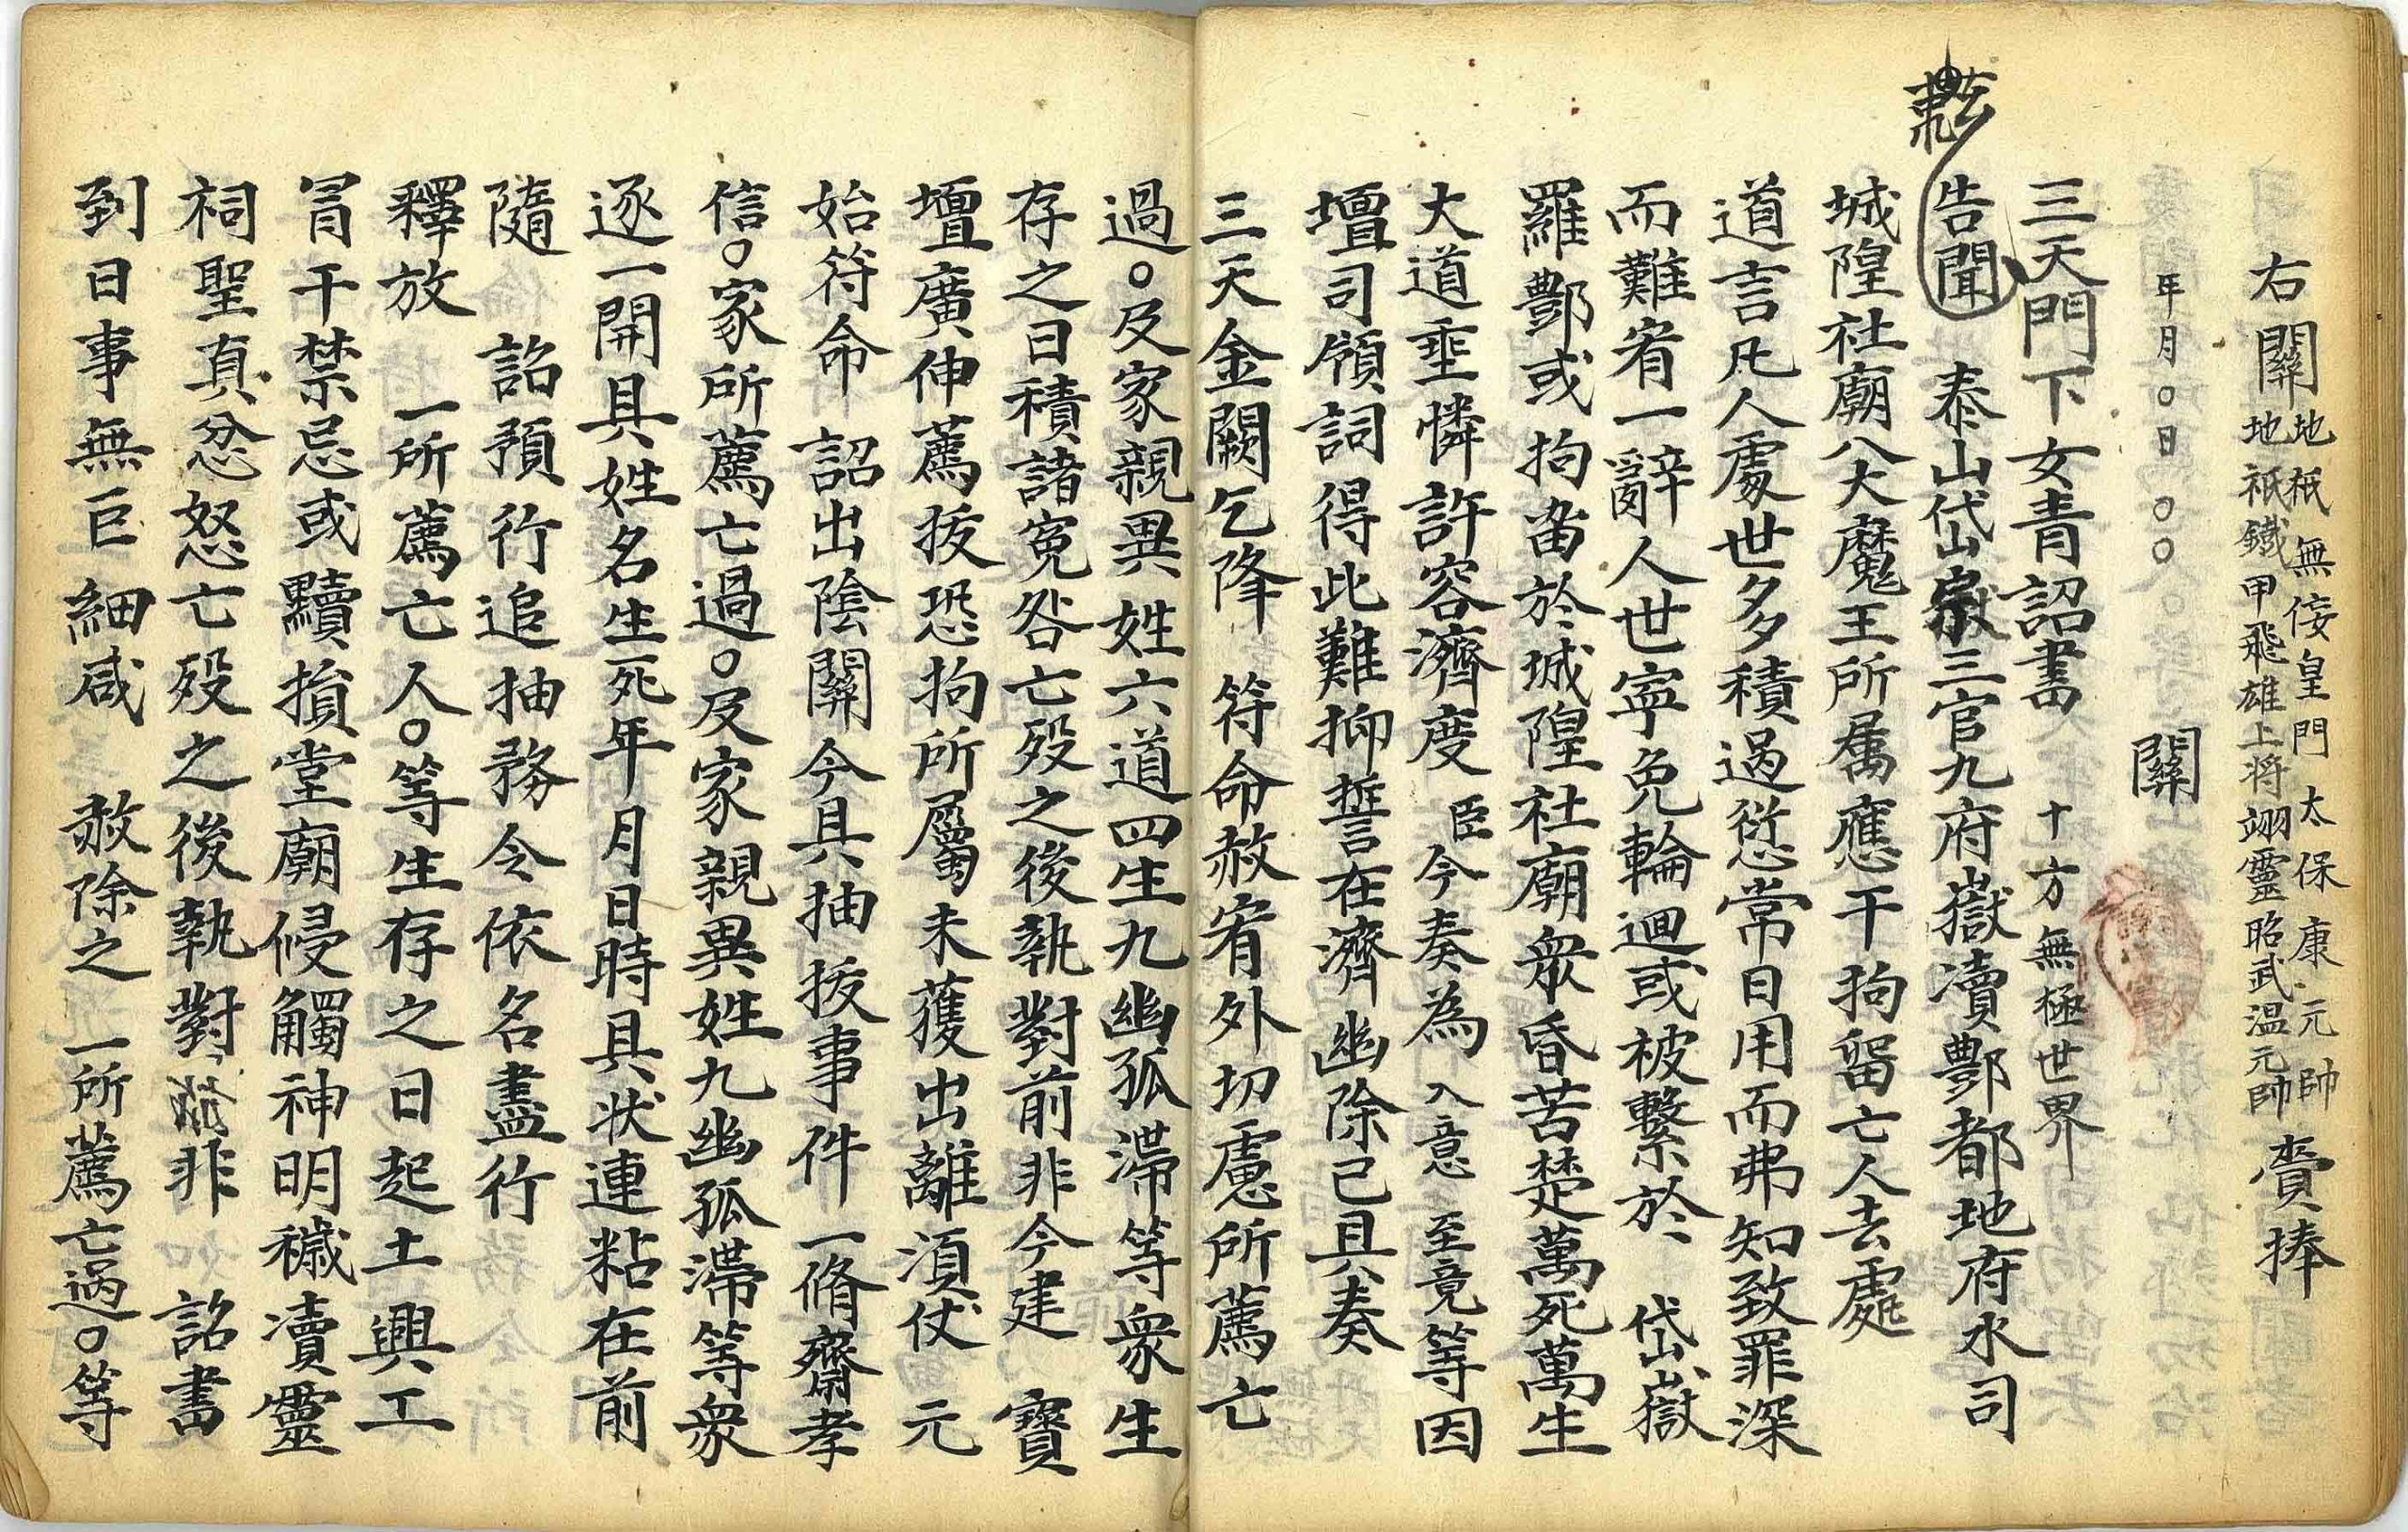 右關地祇無佞皇門太保康元帥
地祇鐵甲飛雄上将翊靈昭武温元帥賫捧
年月〇日〇〇 關
三天門下女青詔書 十方無極世界
告聞 泰山岱嶽三官九府嶽瀆酆都地府水司
城隍社廟八大魔王所属應干拘留亡人去處
道言凡人處世多積過愆常日用而弗知致罪深
而難宥一辭人世寜免輪迴或被繋於 岱嶽
羅酆或拘畱於城隍社廟衆昏苦楚萬死萬生
大道垂憐許容濟度 臣今奏為 入意 至竟等因
壇司領詞得此難抑誓在濟幽除已具奏
三天金闕乞降 符命赦宥外切慮所薦亡
過〇及家親異姓六道四生九幽孤滯等衆生
存之日積諸寃咎亡殁之後執對前非今建 寳
壇廣伸薦拔恐拘所屬未獲出離湏仗 元
始符命 詔出陰關今具抽拔事件一脩齋孝
信〇家所薦亡過〇及家親異姓九幽孤滯等衆
逐一開具姓名生死年月日時具状連粘在前
隨 詔預行追抽務令依名盡行
釋放 一所薦亡人〇等生存之日起土興工
冐干禁忌或黷損堂廟侵觸神明穢瀆靈
祠聖真忿怒亡殁之後執對非 詔書
到日事無巨細咸 赦除之 一所薦亡過〇等